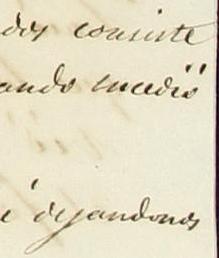 dos consiste
ando sucedió
é dejandonos